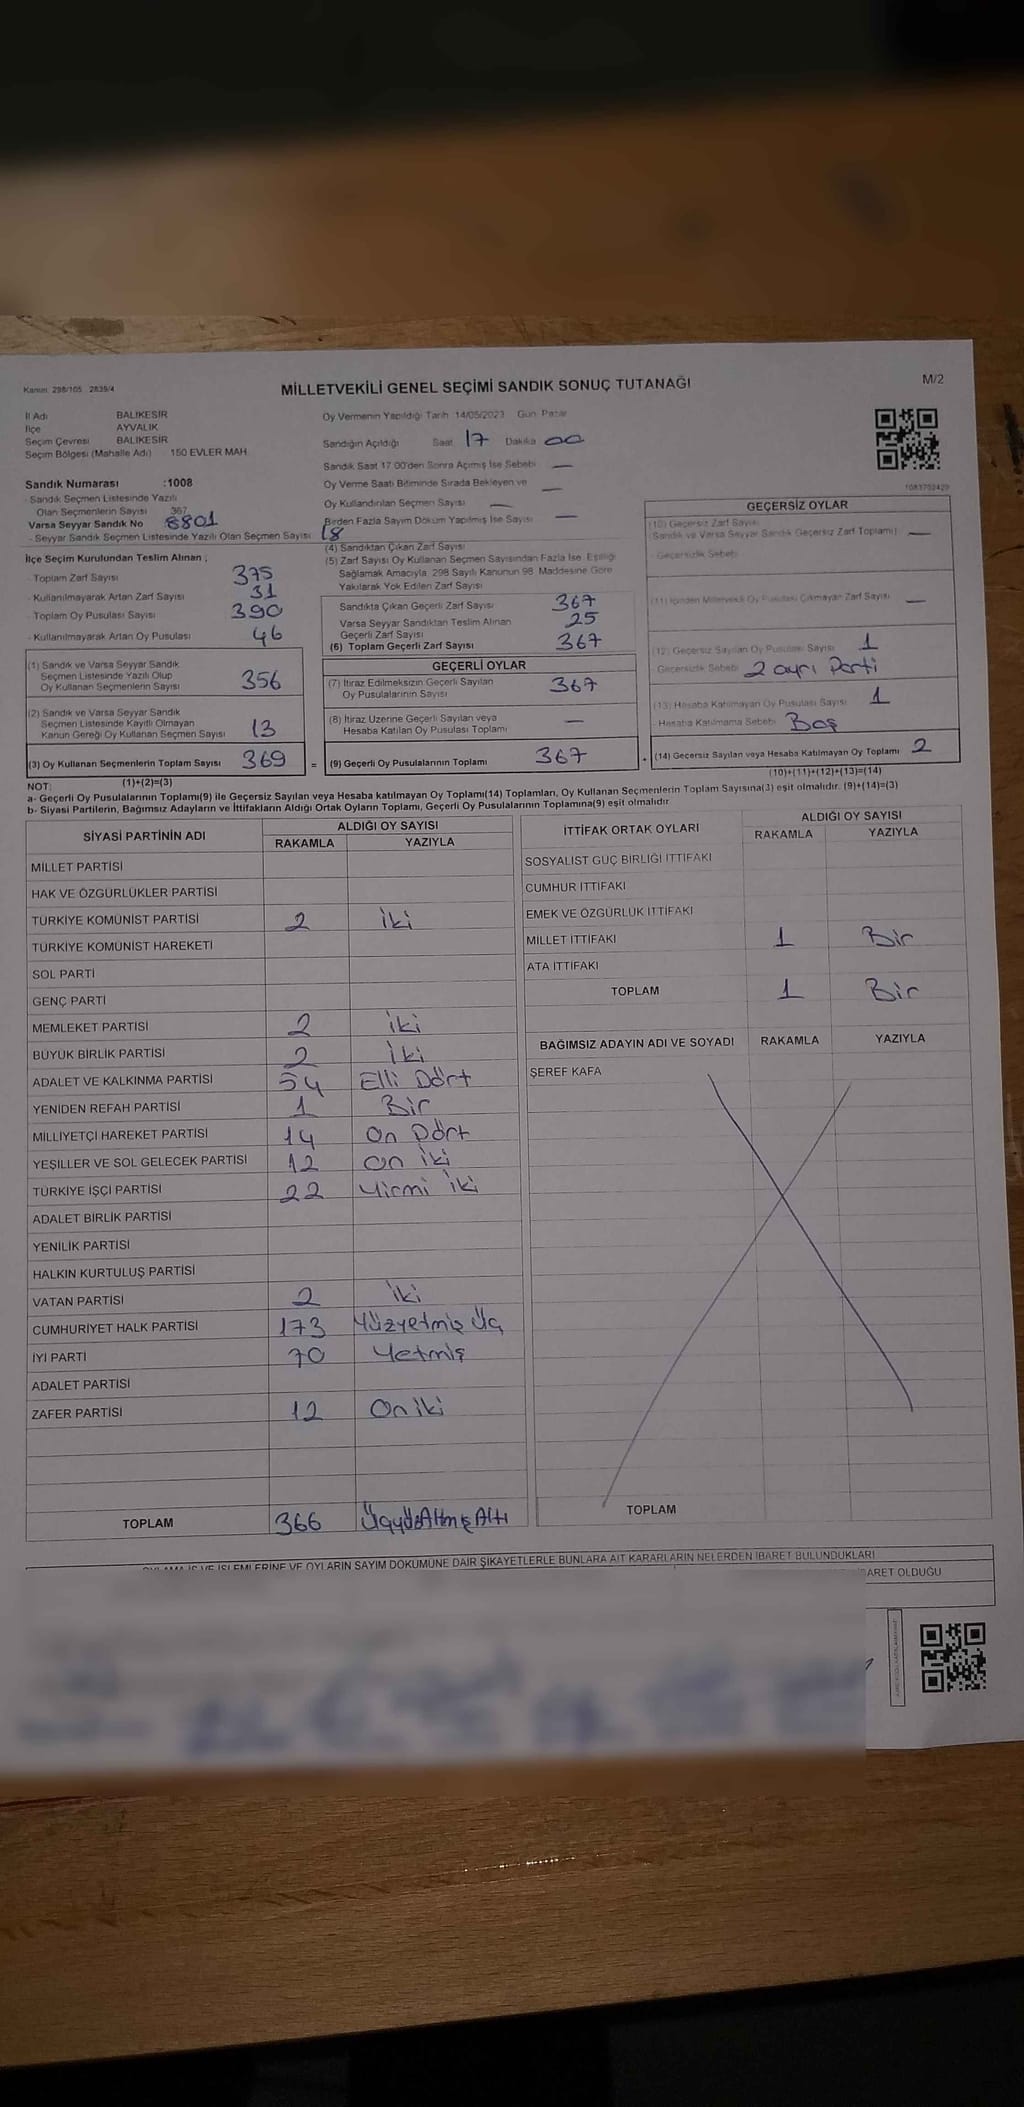 Kanun: 298/105 2839/4
MİLLETVEKİLİ GENEL SEÇİMİ SANDIK SONUÇ TUTANAĞI
M/2
İl Adı BALIKESİR
İlçe AYVALIK
Seçim Çevresi BALIKESİR
Seçim Bölgesi (Mahalle Adı) 150 EVLER MAH.
Sandık Numarası :1008
- Sandık Seçmen Listesinde Yazılı
Olan Seçmenlerin Sayısı 367
Varsa Seyyar Sandık No 8801
- Seyyar Sandık Seçmen Listesinde Yazılı Olan Seçmen Sayısı 18
İlçe Seçim Kurulundan Teslim Alınan ;
- Toplam Zarf Sayısı 375
- Kullanılmayarak Artan Zarf Sayısı 31
- Toplam Oy Pusulası Sayısı 390
- Kullanılmayarak Artan Oy Pusulası 46
(1) Sandık ve Varsa Seyyar Sandık
Seçmen Listesinde Yazılı Olup
Oy Kullanan Seçmenlerin Sayısı 356
(2) Sandık ve Varsa Seyyar Sandık
Seçmen Listesinde Kayıtlı Olmayan
Kanun Gereği Oy Kullanan Seçmen Sayısı 13
(3) Oy Kullanan Seçmenlerin Toplam Sayısı 369
Oy Vermenin Yapıldığı Tarih 14/05/2023 Gün Pazar
Sandığın Açıldığı Saat 17 Dakika 00
Sandık Saat 17:00'den Sonra Açılmış İse Sebebi —
Oy Verme Saati Bitiminde Sırada Bekleyen ve
Oy Kullandırılan Seçmen Sayısı —
Birden Fazla Sayım Döküm Yapılmış İse Sayısı —
(4) Sandıktan Çıkan Zarf Sayısı
(5) Zarf Sayısı Oy Kullanan Seçmen Sayısından Fazla İse, Eşitliği
Sağlamak Amacıyla, 298 Sayılı Kanunun 98. Maddesine Göre
Yakılarak Yok Edilen Zarf Sayısı
Sandıkta Çıkan Geçerli Zarf Sayısı 367
Varsa Seyyar Sandıktan Teslim Alınan
Geçerli Zarf Sayısı 25
(6) Toplam Geçerli Zarf Sayısı 367
GEÇERLİ OYLAR
(7) İtiraz Edilmeksizin Geçerli Sayılan
Oy Pusulalarının Sayısı 367
(8) İtiraz Üzerine Geçerli Sayılan veya
Hesaba Katılan Oy Pusulası Toplamı —
= (9) Geçerli Oy Pusulalarının Toplamı 367
GEÇERSİZ OYLAR
(10) Geçersiz Zarf Sayısı
(Sandık ve Varsa Seyyar Sandık Geçersiz Zarf Toplamı) —
- Geçersizlik Sebebi
(11) İçinden Milletvekili Oy Pusulası Çıkmayan Zarf Sayısı —
(12) Geçersiz Sayılan Oy Pusulası Sayısı 1
- Geçersizlik Sebebi 2 ayrı Parti
(13) Hesaba Katılmayan Oy Pusulası Sayısı 1
- Hesaba Katılmama Sebebi Boş
(14) Geçersiz Sayılan veya Hesaba Katılmayan Oy Toplamı 2
NOT: (1)+(2)=(3)
(10)+(11)+(12)+(13)=(14)
a- Geçerli Oy Pusulalarının Toplamı(9) ile Geçersiz Sayılan veya Hesaba katılmayan Oy Toplamı(14) Toplamları, Oy Kullanan Seçmenlerin Toplam Sayısına(3) eşit olmalıdır. (9)+(14)=(3)
b- Siyasi Partilerin, Bağımsız Adayların ve İttifakların Aldığı Ortak Oyların Toplamı, Geçerli Oy Pusulalarının Toplamına(9) eşit olmalıdır
SİYASİ PARTİNİN ADI ALDIĞI OY SAYISI
RAKAMLA YAZIYLA
MİLLET PARTİSİ
HAK VE ÖZGÜRLÜKLER PARTİSİ
TÜRKİYE KOMÜNİST PARTİSİ 2 iki
TÜRKİYE KOMÜNİST HAREKETİ
SOL PARTİ
GENÇ PARTİ
MEMLEKET PARTİSİ 2 iki
BÜYÜK BİRLİK PARTİSİ 2 iki
ADALET VE KALKINMA PARTİSİ 54 Elli Dört
YENİDEN REFAH PARTİSİ 1 Bir
MİLLİYETÇİ HAREKET PARTİSİ 14 On Dört
YEŞİLLER VE SOL GELECEK PARTİSİ 12 On iki
TÜRKİYE İŞÇİ PARTİSİ 22 Yirmi iki
ADALET BİRLİK PARTİSİ
YENİLİK PARTİSİ
HALKIN KURTULUŞ PARTİSİ
VATAN PARTİSİ 2 iki
CUMHURİYET HALK PARTİSİ 173 Yüzyetmiş Üç
İYİ PARTİ 70 Yetmiş
ADALET PARTİSİ
ZAFER PARTİSİ 12 On iki
TOPLAM 366 ÜçyüzAltmışAltı
İTTİFAK ORTAK OYLARI ALDIĞI OY SAYISI
RAKAMLA YAZIYLA
SOSYALİST GÜÇ BİRLİĞİ İTTİFAKI
CUMHUR İTTİFAKI
EMEK VE ÖZGÜRLÜK İTTİFAKI
MİLLET İTTİFAKI 1 Bir
ATA İTTİFAKI
TOPLAM 1 Bir
BAĞIMSIZ ADAYIN ADI VE SOYADI RAKAMLA YAZIYLA
ŞEREF KAFA
TOPLAM
İŞ VE İŞLEMLERİNE VE OYLARIN SAYIM DÖKÜMÜNE DAİR ŞİKAYETLERLE BUNLARA AİT KARARLARIN NELERDEN İBARET BULUNDUKLARI
OLDUĞU